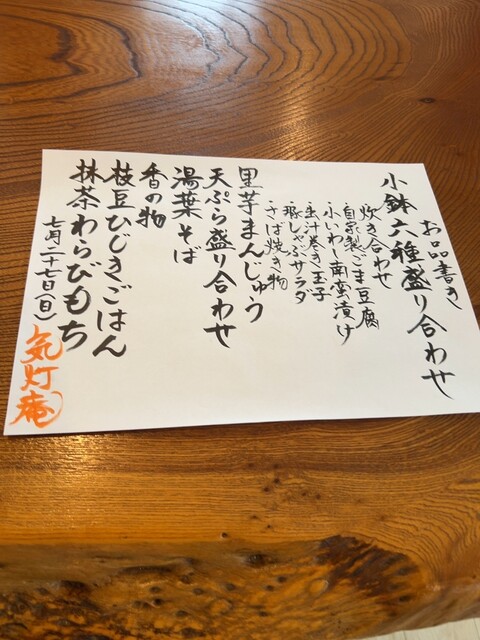 お品書き
小鉢六種盛り合わせ
炊き合わせ
自家製ごま豆腐
小いわし南蛮漬け
出汁巻き玉子
豚しゃぶサラダ
さば焼き物
里芋まんじゅう
天ぷら盛り合わせ
湯葉そば
香の物
枝豆ひじきごはん
抹茶わらびもち
七月二十七日(日)
気灯庵